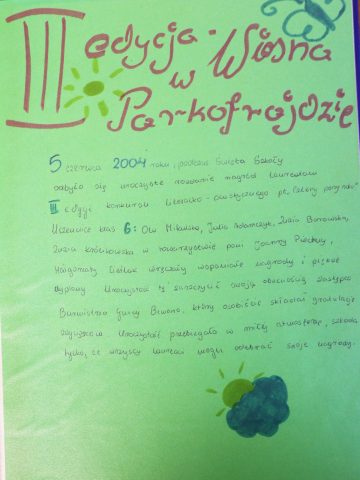 III edycja - Wiosna
w
Parkofrajdzie
5 czerwca 2004 roku, podczas Święta Szkoły
odbyło się uroczyste rozdanie nagród laureatom
III edycji konkursu literacko - plastycznego pt. Cztery pory roku
Uczennice klas 6: Ola Mikulska, Julia Adamczyk, Zuzia Borowska,
Zuzia Królikowska w towarzystwie pani Joanny
Małgorzaty wręczały wspaniałe nagrody i piękne
dyplomy. Uroczystość tę zaszczycił swoją obecnością zastępca
Burmistrza Gminy który osobiście składał gratulacje
zwycięzcom. Uroczystość przebiegała w miłej atmosferze, szkoda
tylko, że wszyscy laureaci mogli odebrać swoje nagrody.